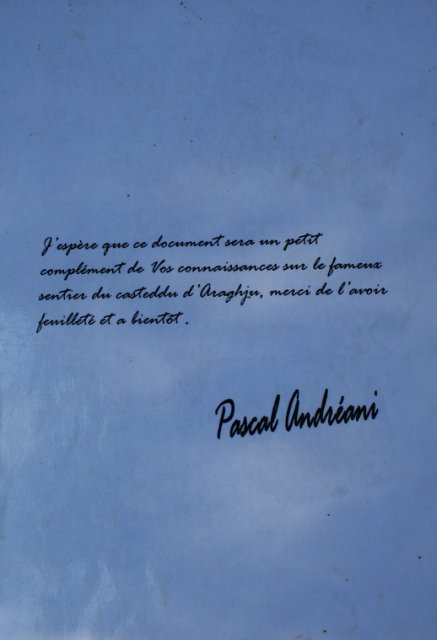 J'espère que ce document sera un petit
complément de Vos connaissances sur le fameux
sentier du casteddu d'Araghju, merci de l'avoir
feuilleté et a bientot .
Pascal Andréani